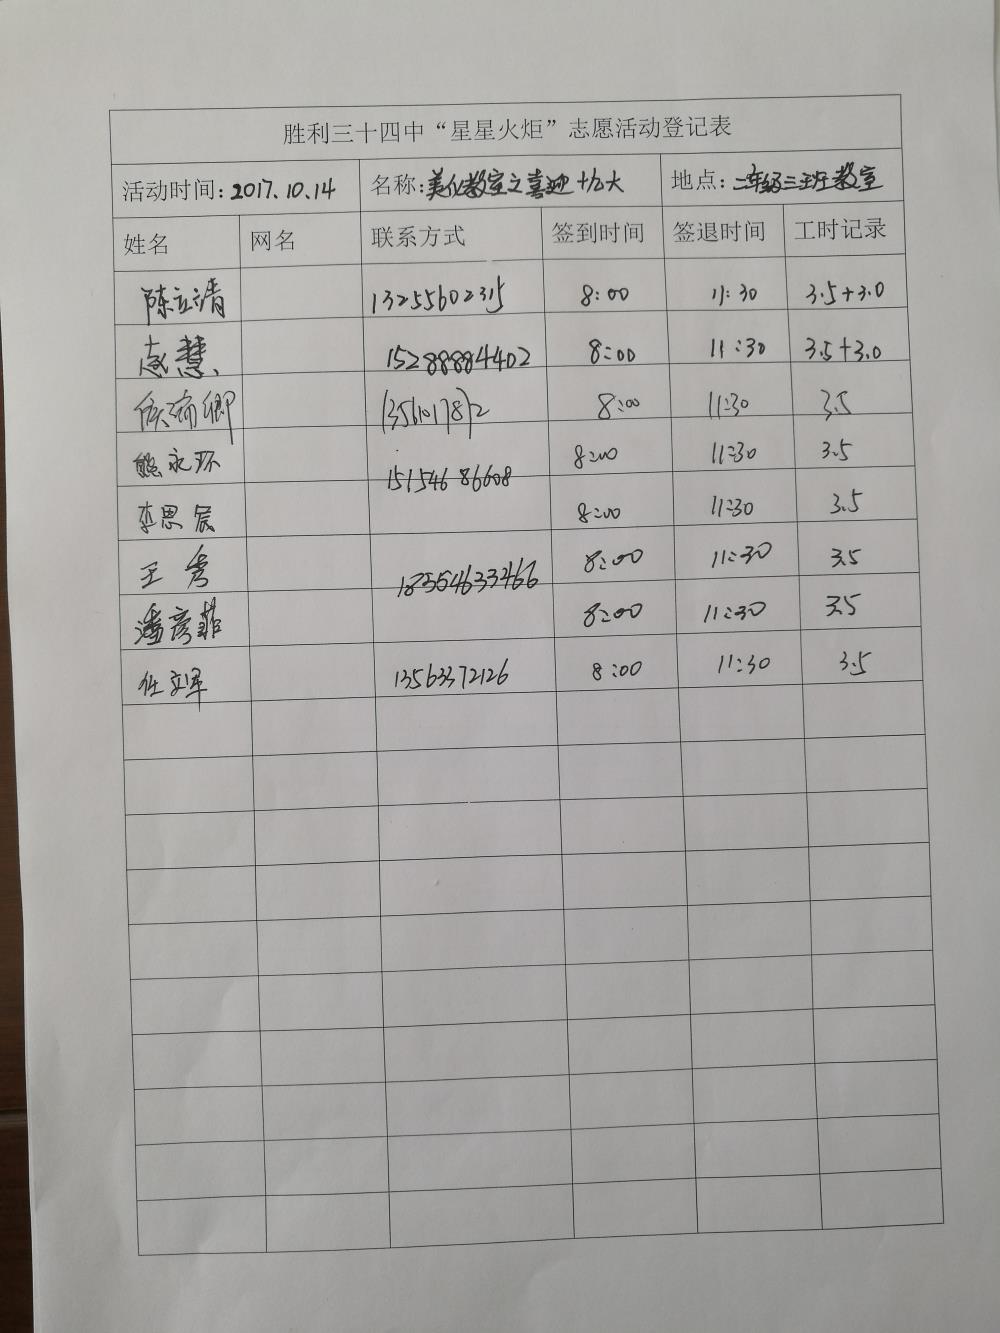 胜利三十四中“星星火炬”志愿活动登记表
活动时间：2017.10.14 名称：美化教室之喜迎十九大 地点：二年级三班教室
姓名 网名 联系方式 签到时间 签退时间 工时记录
陈立清 13255602315 8:00 11:30 3.5+3.0
慧 15288884402 8:00 11:30 3.5+3.0
侯瑜卿 13561017812 8:00 11:30 3.5
熊永环 15154686608 8:00 11:30 3.5
李思宸 8:00 11:30 3.5
王秀 18354633466 8:00 11:30 3.5
潘彦菲 8:00 11:30 3.5
任立军 13563372126 8:00 11:30 3.5